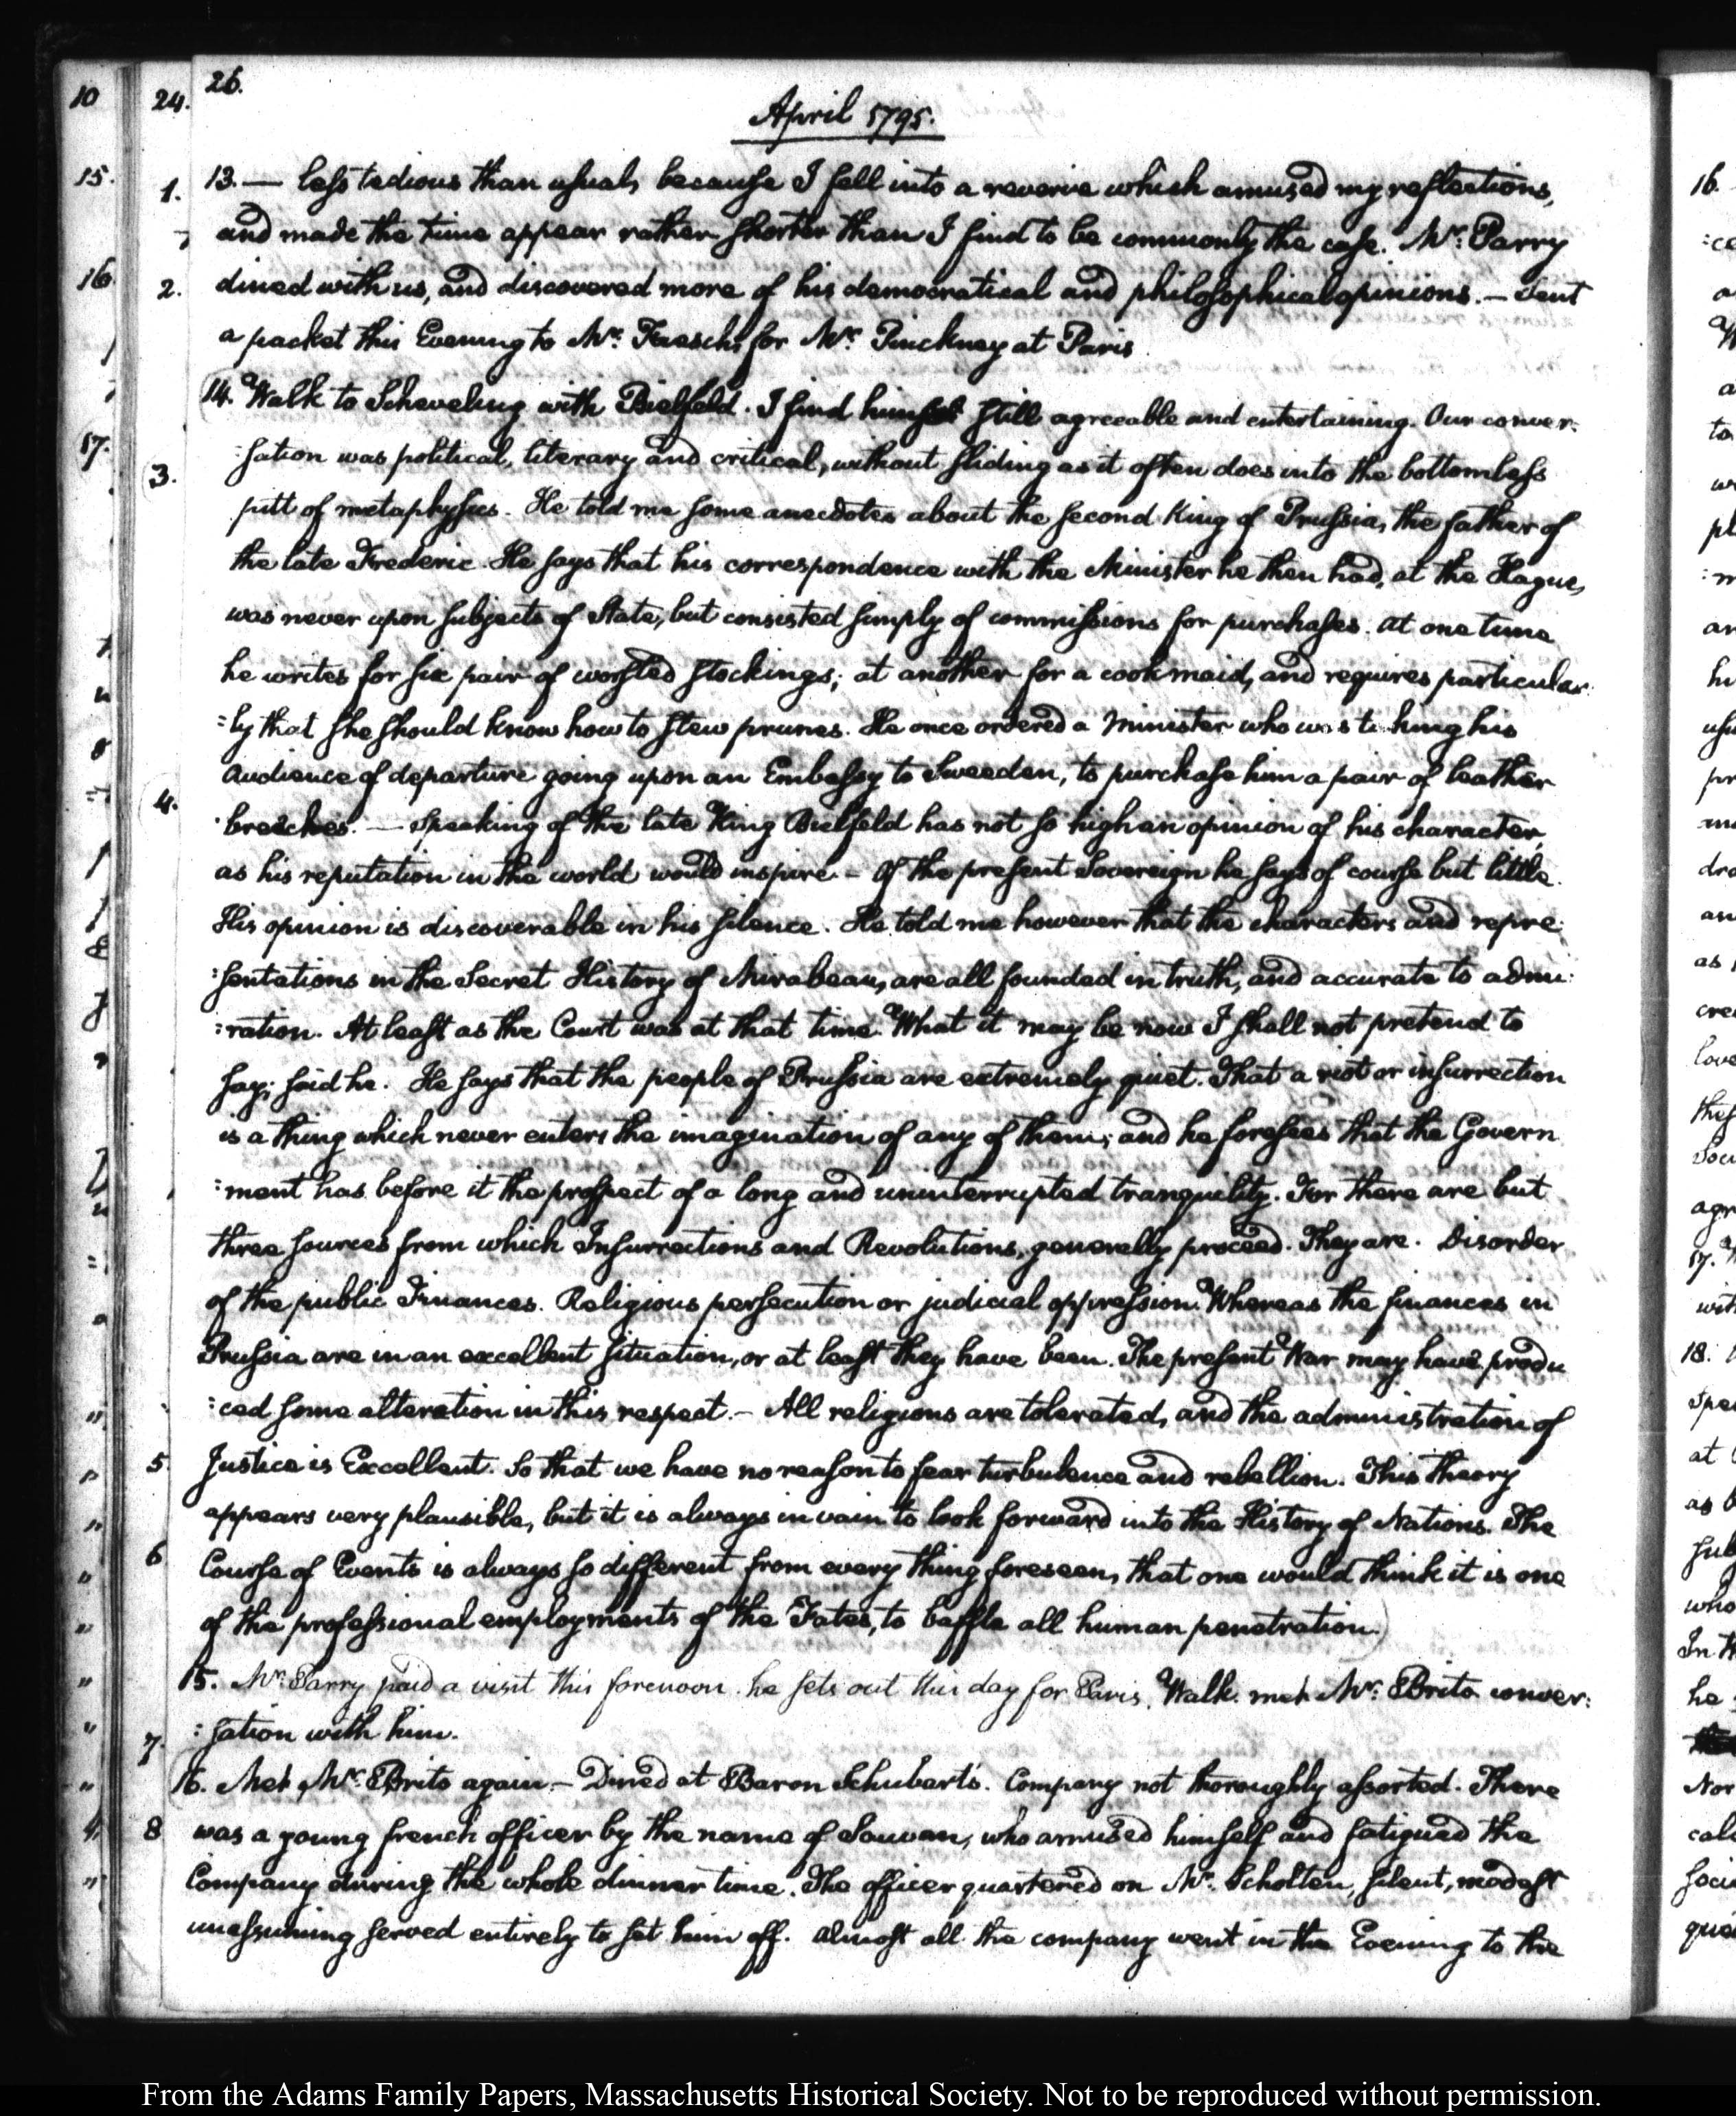 26.
April 1795.
13. — less tedious than usual, because I fell into a reverie which amused my reflections,
and made the time appear rather shorter than I find to be commonly the case. Mr. Parry
dined with us, and discovered more of his democratical and philosophical opinions. — Sent
a packet this Evening to Mr. Faesch, for Mr. Pinckney at Paris
14. Walk to Scheveling with Bielfeld. I find him still agreeable and entertaining. Our conver:
:sation was political, literary and critical, without sliding as it often does into the bottomless
pitt of metaphysics. He told me some anecdotes about the second King of Prussia, the father of
the late Frederic. He says that his correspondence with the Minister he then had, at the Hague,
was never upon subjects of State, but consisted simply of commissions for purchases. At one time
he writes for six pair of worsted stockings; at another for a cook maid, and requires particular:
:ly that she should know how to stew prunes. He once ordered a Minister who was taking his
Audience of departure going upon an Embassy to Sweeden, to purchase him a pair of leather
breeches. — Speaking of the late King Bielfeld has not so high an opinion of his character,
as his reputation in the world would inspire — Of the present Sovereign he says of course but little.
His opinion is discoverable in his silence. He told me however that the characters and repre:
:sentations in the Secret History of Mirabeau, are all founded in truth, and accurate to admi:
:ration. At least as the Court was at that time. What it may be now I shall not pretend to
say; said he. He says that the people of Prussia are extremely quiet. That a riot or insurrection
is a thing which never enters the imagination of any of them; and he foresees that the Govern
:ment has before it the prospect of a long and uninterrupted tranquility. For there are but
three sources from which Insurrections and Revolutions, generally proceed. They are. Disorder
of the public Finances. Religious persecution or judicial oppression. Whereas the finances in
Prussia are in an excellent situation, or at least they have been. The present War may have produ
:ced some alteration in this respect. — All religions are tolerated, and the administration of
Justice is Excellent. So that we have no reason to fear turbulence and rebellion. This theory
appears very plausible, but it is always in vain to look forward into the History of Nations. The
Course of Events is always so different from every thing foreseen, that one would think it is one
of the professional employments of the Fates, to baffle all human penetration.
15. Mr. Parry paid a visit this forenoon. he sets out this day for Paris. Walk. met Mr. Brito conver:
:sation with him.
16. Met Mr. Brito again — Dined at Baron Schubart's. Company not thoroughly assorted. There
was a young french officer by the name of Souvan, who amused himself and fatigued the
Company during the whole dinner time. The officer quartered on Mr. Scholten, silent, modest
unassuming served entirely to set him off. Almost all the company went in the Evening to the
From the Adams Family Papers, Massachusetts Historical Society. Not to be reproduced without permission.